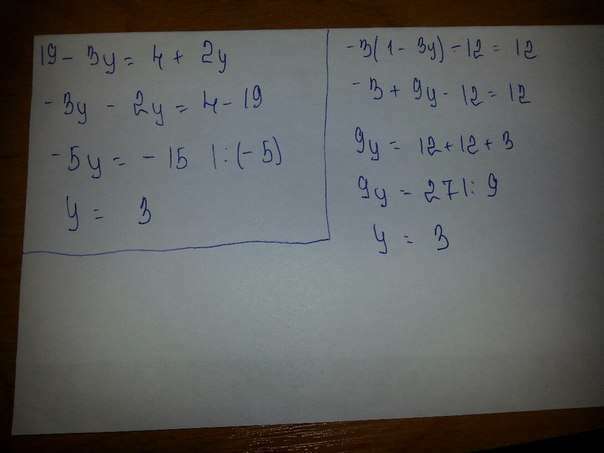 19 - 3y = 4 + 2y
-3y - 2y = 4 - 19
-5y = -15 |:(-5)
y = 3
-3(1 - 3y) - 12 = 12
-3 + 9y - 12 = 12
9y = 12 + 12 + 3
9y = 27 |: 9
y = 3